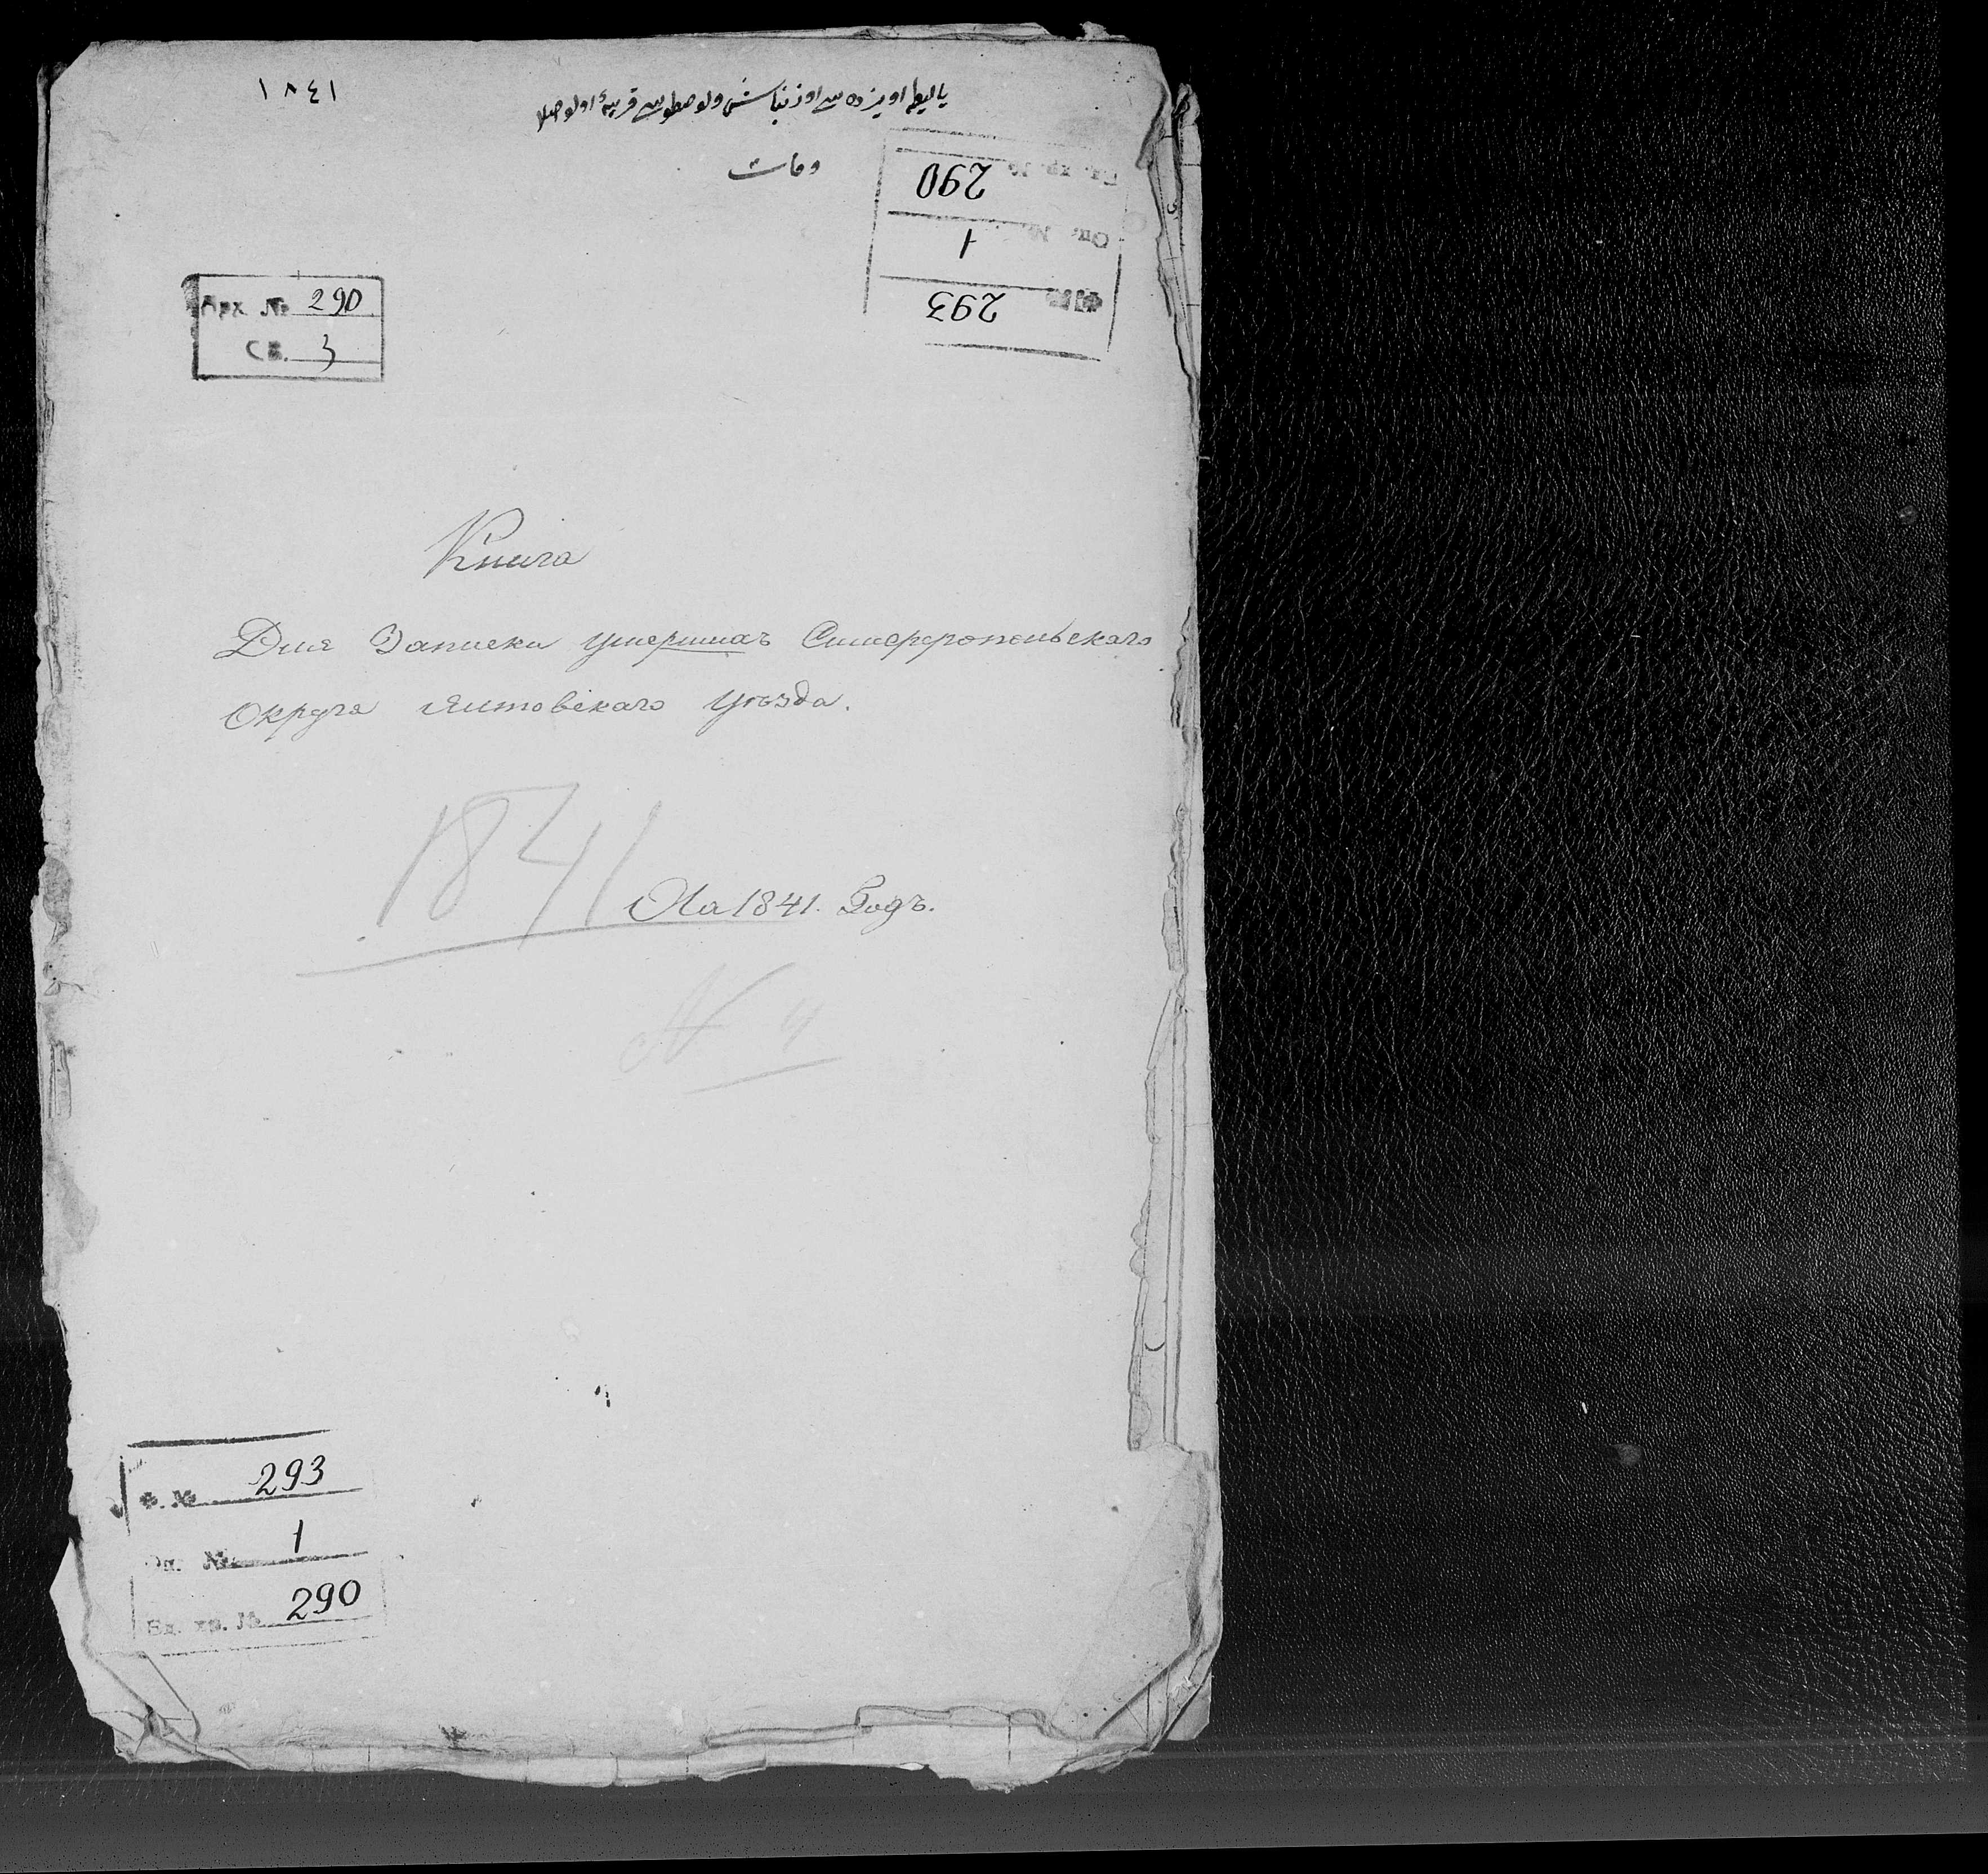 ١٨٤١
وفات
290
1
293
Арх. № 290
Св. 3
Книга
Для Записки умершихъ Симферопольскаго
Округа Ялтовскаго уѣзда.
1841
На 1841. Годъ.
N 4
Ф. № 293
Оп. № 1
Ед. хр. № 290